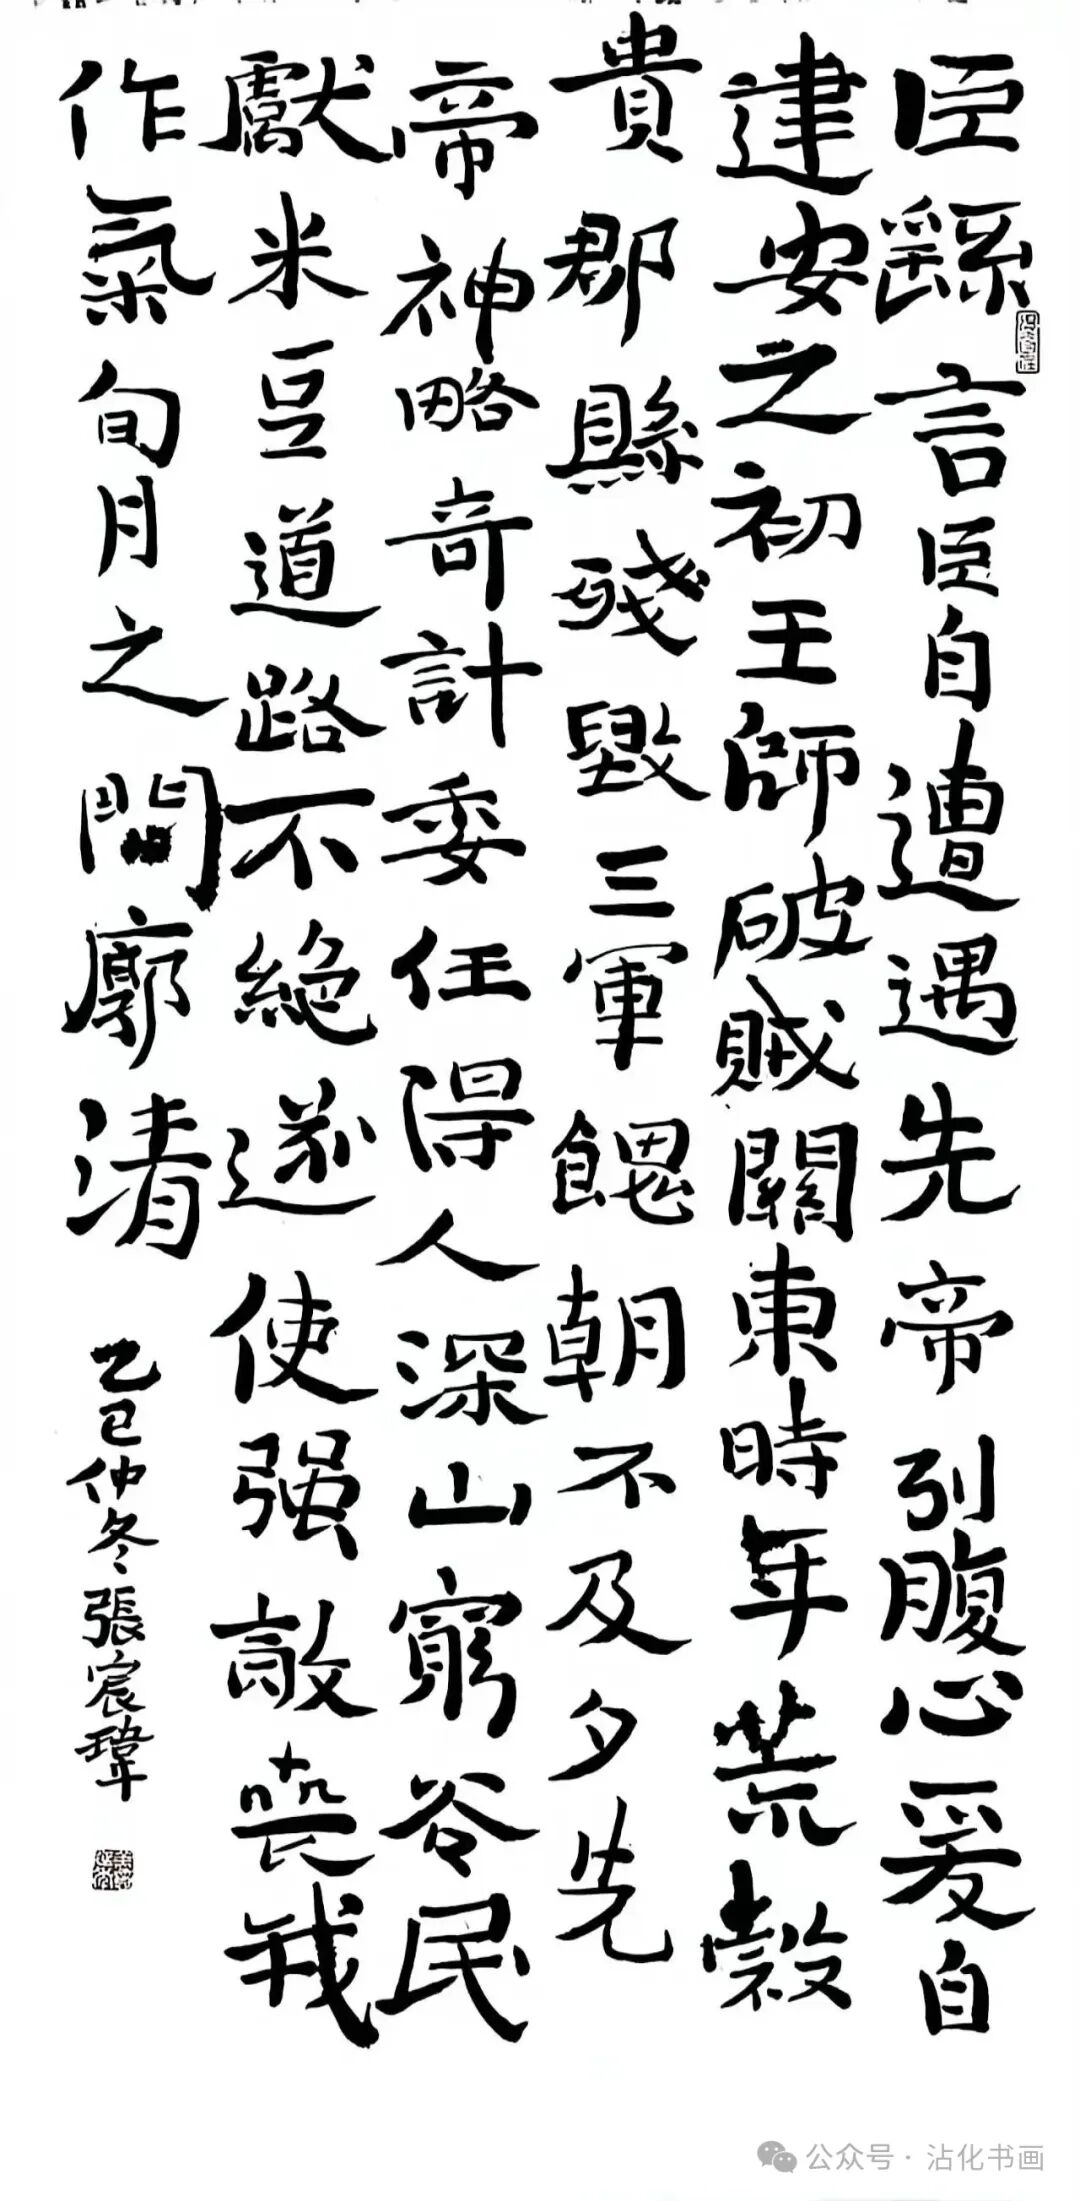 臣繇言臣自遭遇先帝列腹心爰自
建安之初王師破賊關東時年荒穀
貴郡縣殘毀三軍餽朝不及夕先
帝神略奇計委任得人深山窮谷民
獻米豆道路不絕遂使强敵喪我
作氣旬月之間廓清
乙巳仲冬張宸瑋
公众号·沾化书画